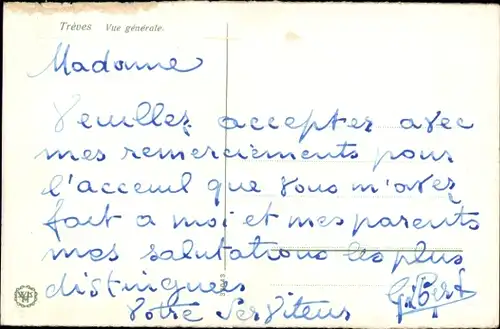 Trèves Vue générale.
Madame
Veuillez accepter avec
mes remerciements pour
l'acceuil que vous m'avez
fait a moi et mes parents
mes salutations les plus
distinguees
Votre Serviteur